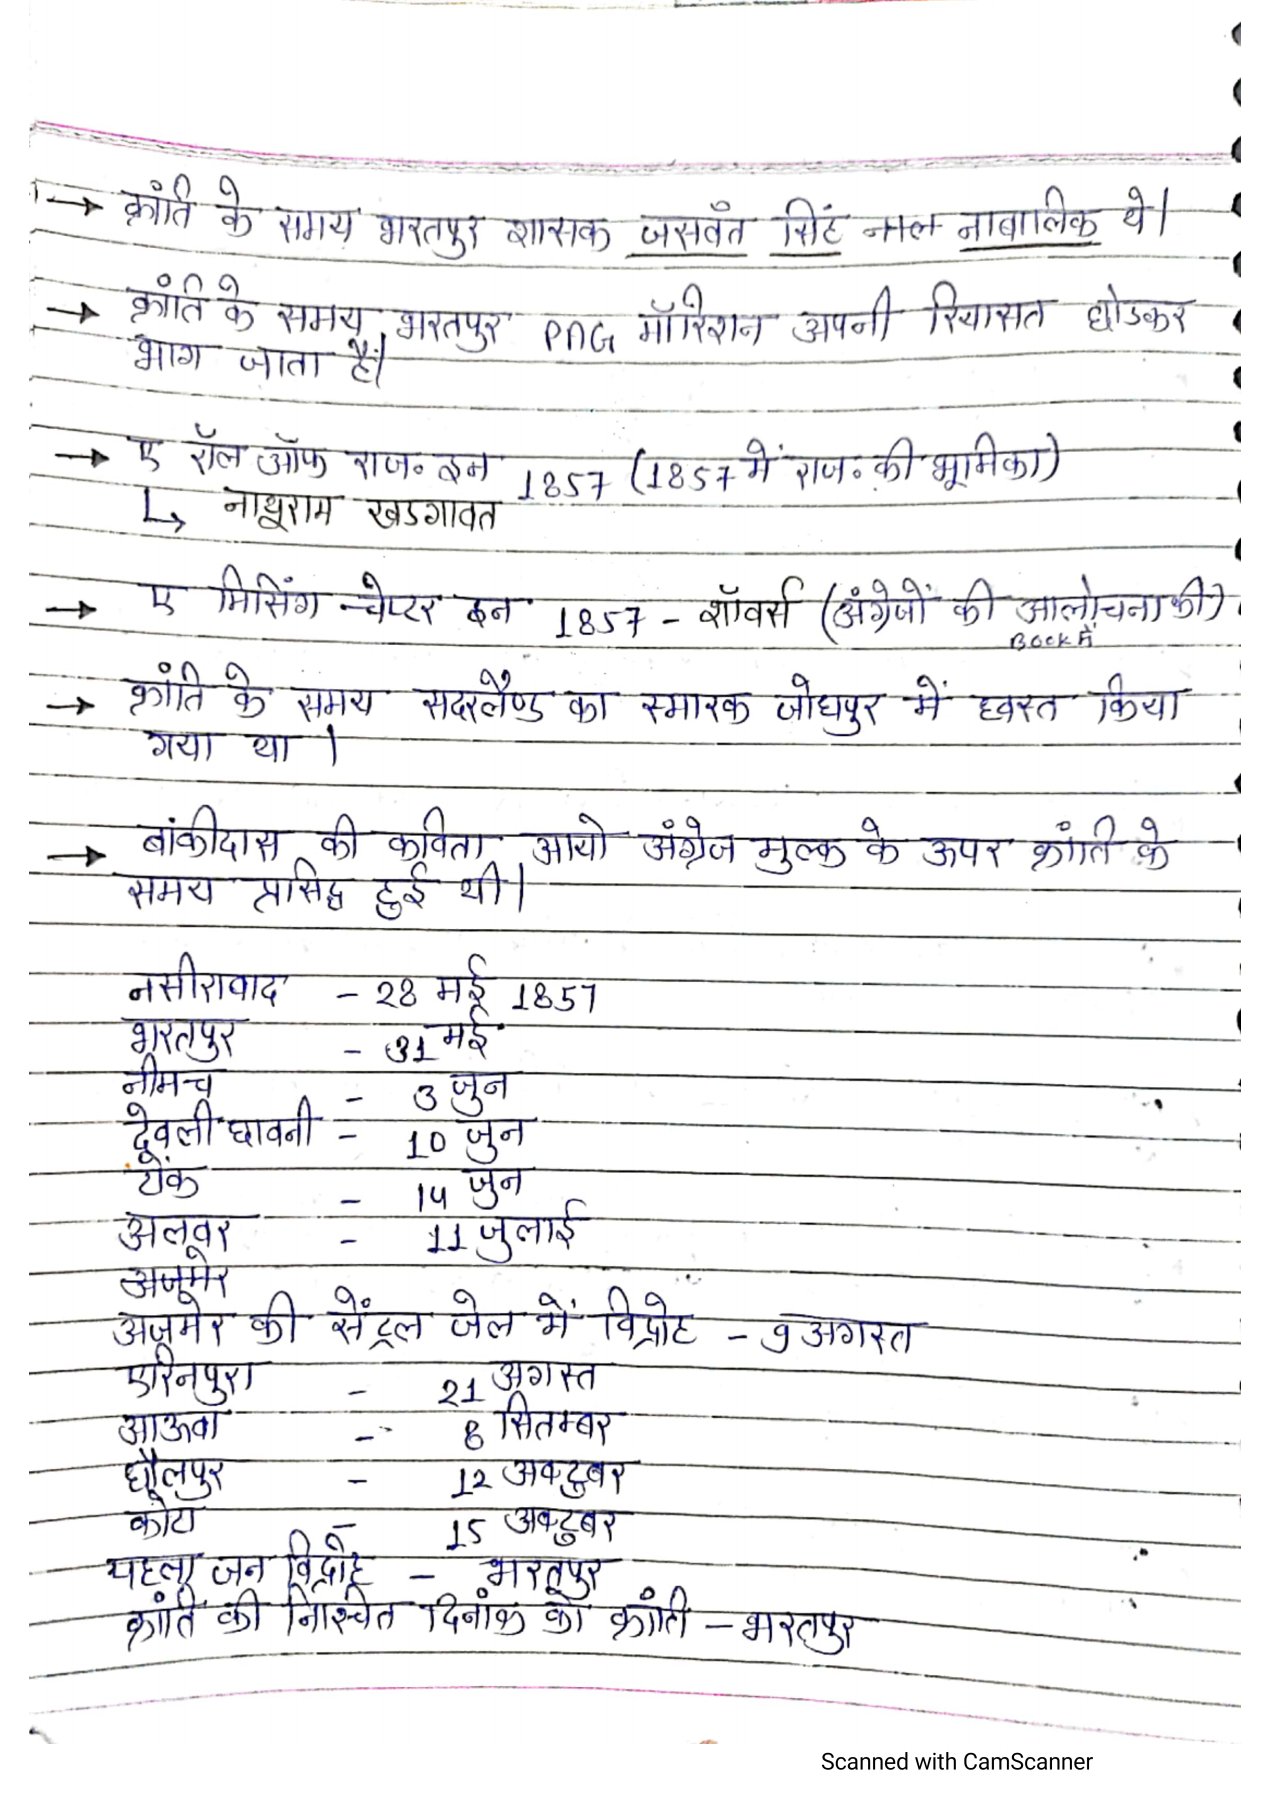 → क्रांति के समय भरतपुर शासक जसवंत सिंह नाल नाबालिक थे।
→ क्रांति के समय भरतपुर PAG मॉरिशन अपनी रियासत छोडकर
भाग जाता है।
→ ए रॉल ऑफ राज॰ इन 1857 (1857 में राज॰ की भूमिका)
↳ नाथूराम खडगावत
→ ए मिसिंग चेप्टर इन 1857 - शॉवर्स (अंग्रेजों की आलोचना की)
Book में
→ क्रांति के समय सदरलैण्ड का स्मारक जोधपुर में ध्वस्त किया
गया था।
→ बांकीदास की कविता आयो अंग्रेज मुल्क के ऊपर क्रांति के
समय प्रसिद्ध हुई थी।
नसीराबाद - 28 मई 1857
भरतपुर - 31 मई
नीमच - 3 जुन
देवली छावनी - 10 जुन
टोंक - 14 जुन
अलवर - 11 जुलाई
अजमेर
अजमेर की सेंट्रल जेल में विद्रोह - 9 अगस्त
एरिनपुरा - 21 अगस्त
आऊवा - 8 सितम्बर
धौलपुर - 12 अक्टुबर
कोटा - 15 अक्टुबर
पहला जन विद्रोह - भरतपुर
क्रांति की निश्चित दिनांक को क्रांति - भरतपुर
Scanned with CamScanner